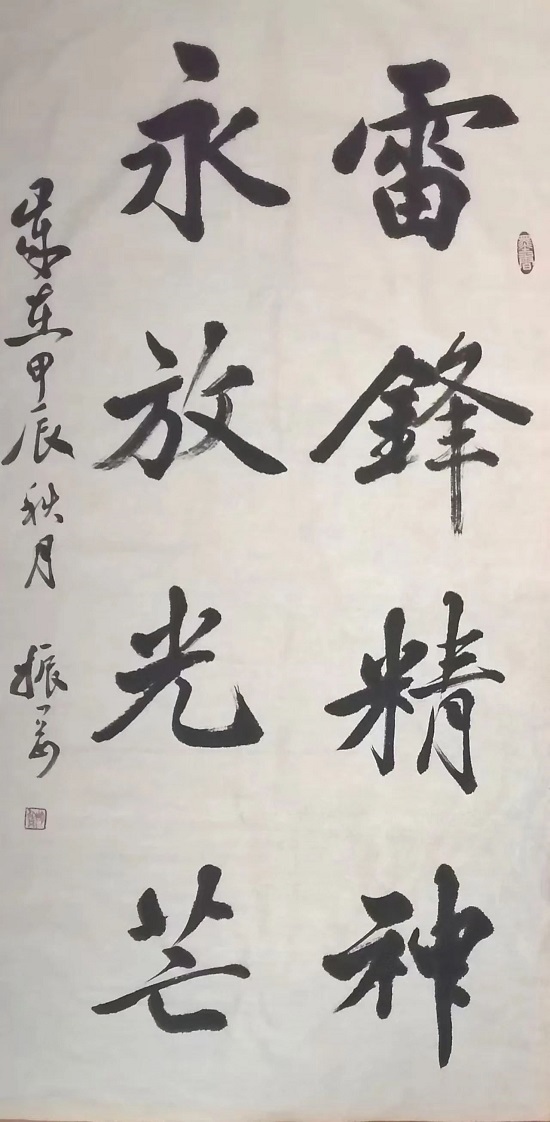 雷鋒精神
永放光芒
歲在甲辰秋月 振